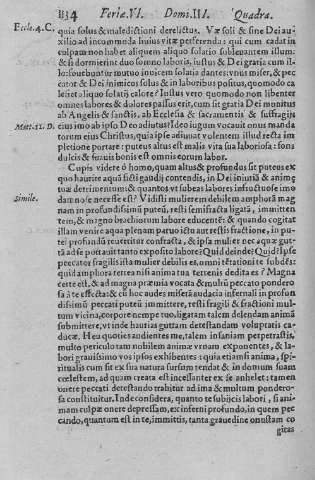 834 Feriæ.VI. Domi.III. Quadra.
Eccle.4.C. quia solus & maledictioni derelictus. Væ soli & sine Dei au-
xilio ad incommoda huius vitæ perferenda: qui cum cadat in
culpam non habet aliquem alium solario subleuantem illum:
& si dormierint duo somno laboris, iustus & Dei gratia cum il-
lo: fouebuntur mutuo inuicem solamina dantes: vnus miser, & pec-
cator & Dei inimicus solus & in laboribus positus, quomodo ca
lefiet aliquo solatij calore? Iustus vero quomodo non libenter
omnes labores & dolores passus erit, cum sit gratia Dei munitus
ab Angelis & sanctis, ab Ecclesia & sacramentis & suffragijs
Matt.11.D. eius imo ab ipso Deo adiutus? Ideo iugum vocauit onus manda
torum eius Christus, quia ipse adiuuat volentem illud recta im
pletione portare: puteus altus est malis vita sua laboriosa: fons
dulcis & suauis bonis est omnis eorum labor.
Cupis videre ô homo, quam altus & profundus sit puteus ex
quo haurire aquā illā gaudij contendis, in Dei iniuriā & animę
tuæ detrimentum: & quantos vt subeas labores infructuose imo
Simile. damno se necesse est? Vidisti mulierem debilem amphorā mag
nam in profundissimū puteū, resti semifracta ligatā, immitten
tem, & magno brachiorum labore educentem: & quando cogitat
illam venire aqua plenam paruo ictu aut restis fractione, in pu-
tei profundū reuertitur confracta, & ipsa mulier nec aquæ gut-
tā ad se portauit tanto exposito labore? Quid deinde? Quid? Ipse
peccator; fragilis ista mulier debilis et, omni tētationi te subdēs:
quid amphora terrea nisi anima tua terrenis dedita es? Magna
certe est, & ad magna præmia vocata & multū peccato pondero
sa ā te effecta: & eā hoc audes misera audacia infernali in profun
dissimū peccati putei immittere, resti fragili & fractioni mul-
tum vicina, corpore nempe tuo, ligatam talem delendam animā
submittere, vt inde haurias guttam detestandam voluptatis ca-
ducæ. Heu quoties audientes me, talem insaniam perpetrastis,
multo periculo tam nobilem animæ vrnam exponentes, & la-
bori grauissimo vos ipsos exhibentes: quia etiamsi anima, spi-
ritualis cum sit ex sua natura sursum tendat & in domum suam
cœlestem, ad quam creata est incessanter ex se anhelet: tamen
onere peccati detestando trahitur ad ima & multum pondero-
sa constituitur. Inde considera, quanto te subijcis labori, si ani-
mam culpæ onere depressam, ex inferni profundo, in quem pec
cando, quantum est in te, immittis, tanta grauedine onustam co
gitas